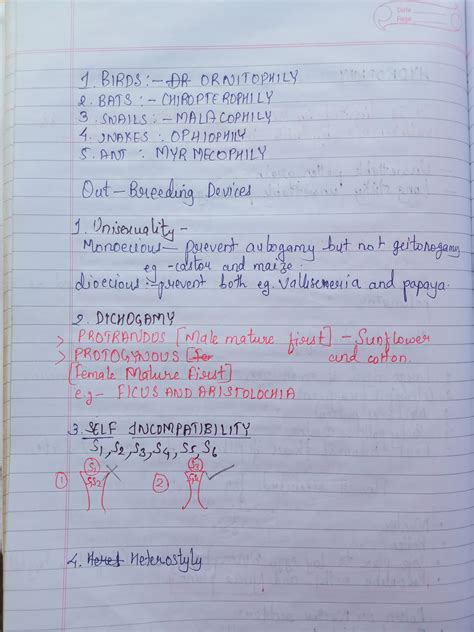 Date
Page
1. BIRDS :- ORNITOPHILY
2. BATS :- CHIPOPTEROPHILY
3 SNAILS :- MALACOPHILY
4. SNAKES : OPHIOPHILY
5. ANT : MYRMECOPHILY
Out-Breeding Devices
1. Unisexuality -
Monoecious - prevent autogamy but not geitonogamy
eg - castor and maize.
dioecious :- prevent both eg. Vallisemeria and papaya.
2. DICHOGAMY
> PROTRANDOS [Male mature first] - Sunflower
> PROTOGYNOUS and cotton.
[Female Mature First]
e.g - FICUS AND ARISTOLOCHIA
3. SELF INCOMPATIBILITY
S1, S2, S3, S4, S5, S6
S1 S3
① S1S2 ② S1S2
4. Heterostyly